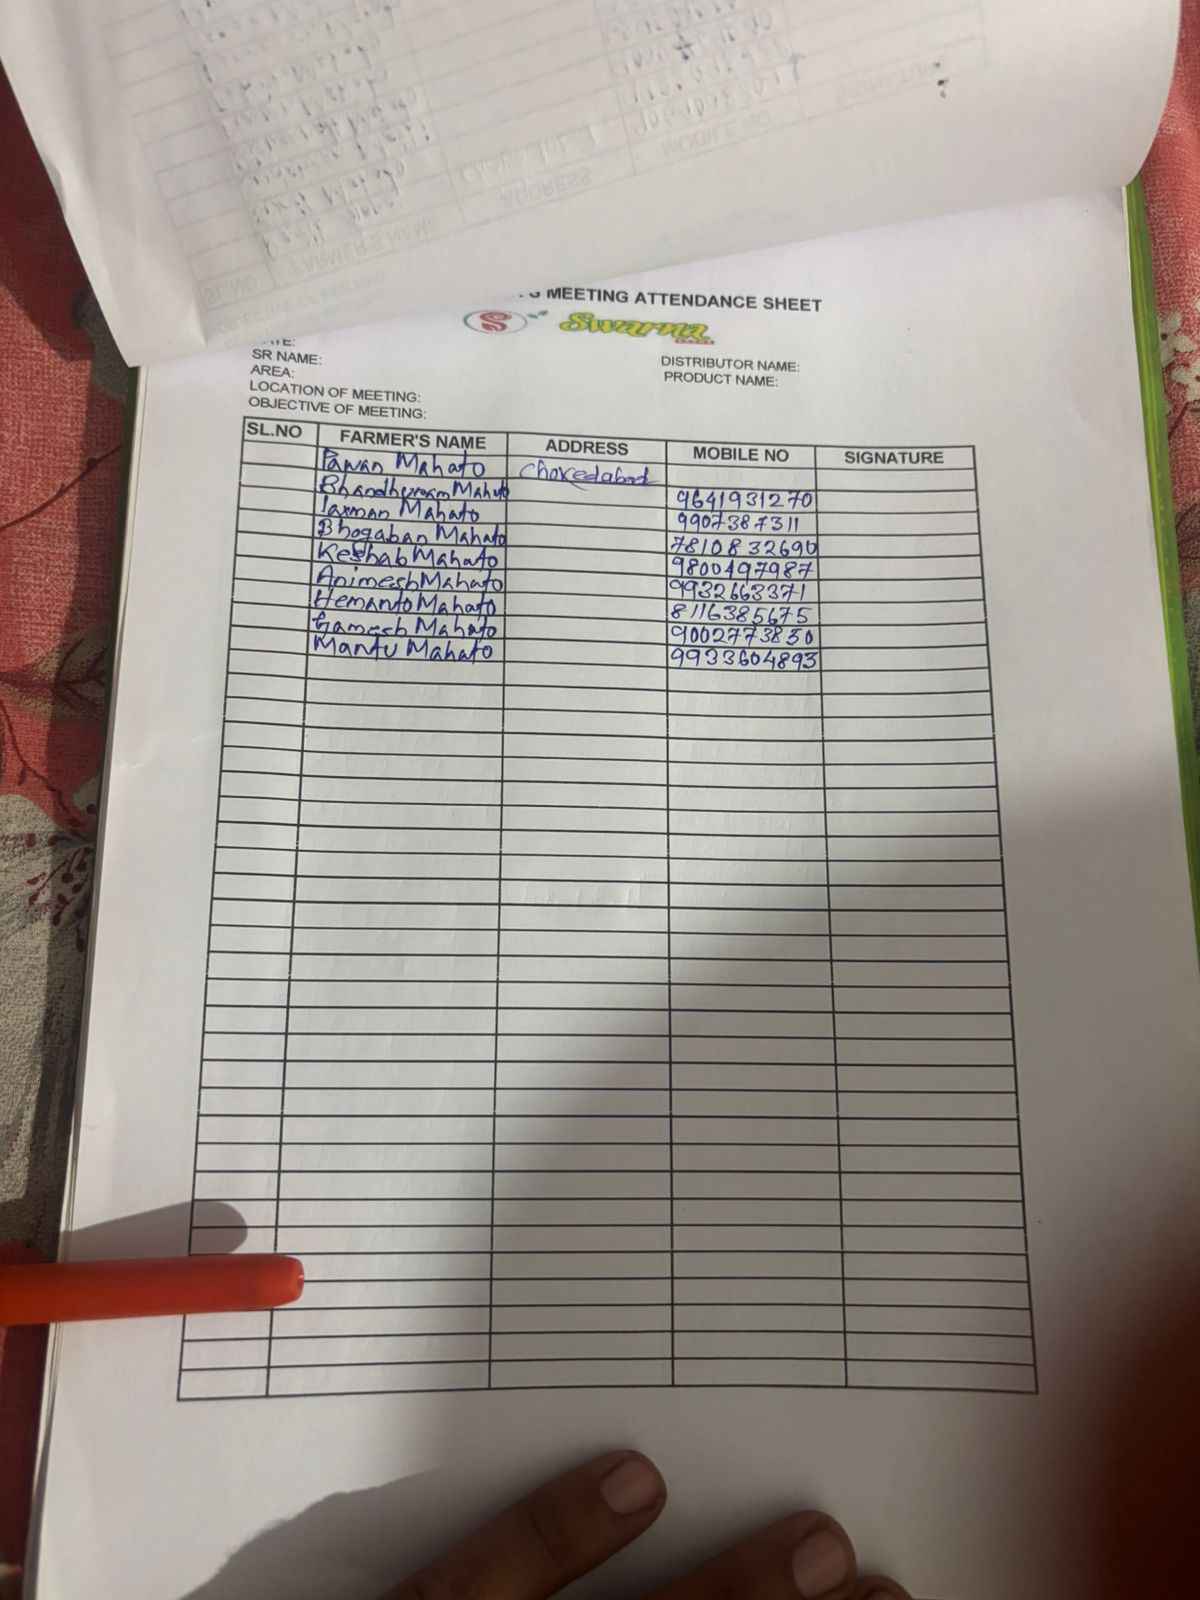 MEETING ATTENDANCE SHEET
S Swarna
SR NAME:
DISTRIBUTOR NAME:
AREA:
PRODUCT NAME:
LOCATION OF MEETING:
OBJECTIVE OF MEETING:
SL.NO FARMER'S NAME ADDRESS MOBILE NO SIGNATURE
Pawan Mahato
Mahato 9641931270
Laxman Mahato 9907387311
Bhogaban Mahato 7810832690
Keshab Mahato 9800497987
Animesh Mahato 9932663371
Hemanto Mahato 8116385675
Gamesh Mahato 9002773830
Mantu Mahato 9933604893